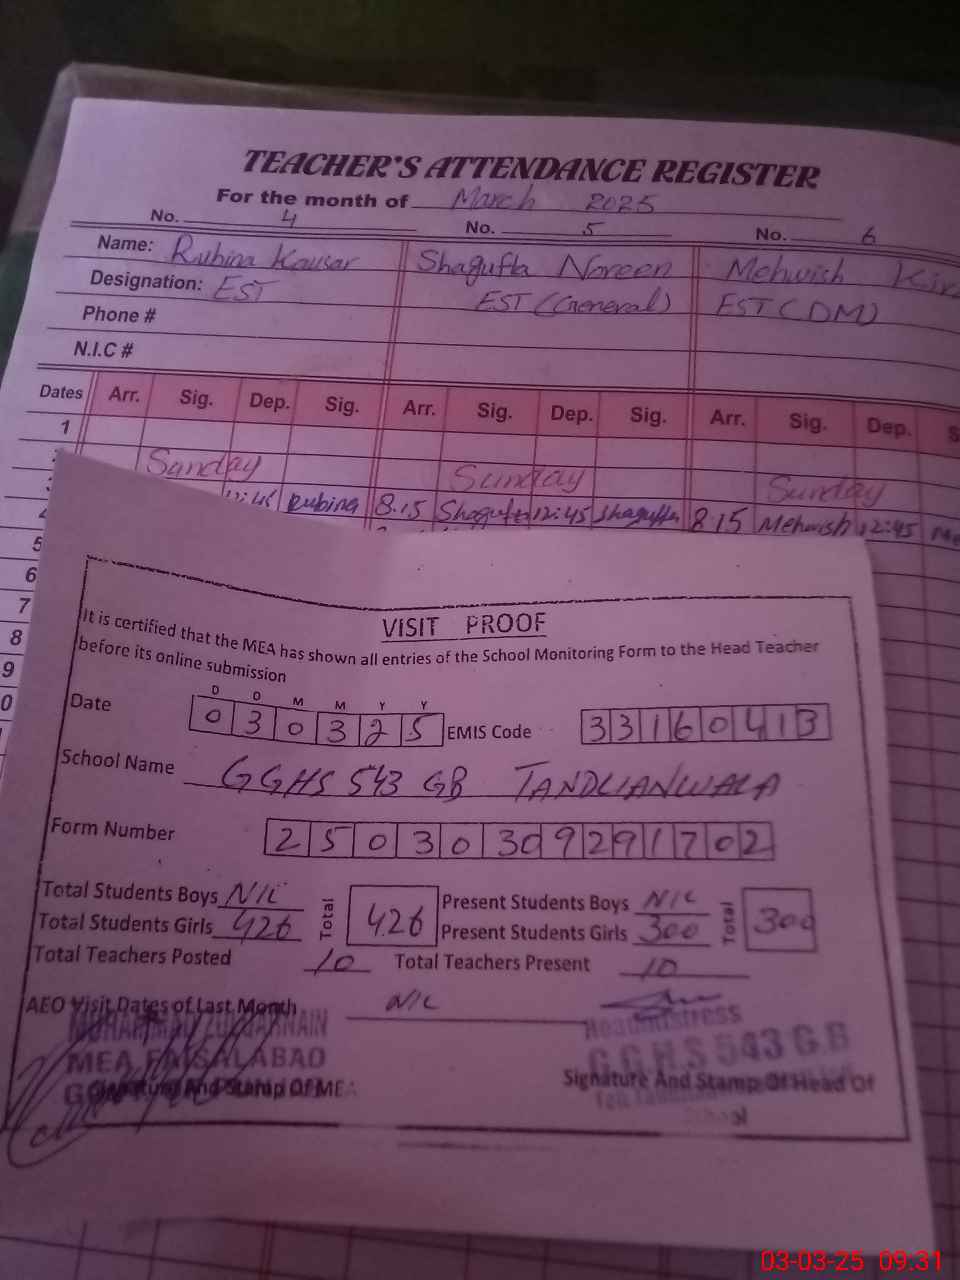 TEACHER'S ATTENDANCE REGISTER
For the month of March 2025
No. 4 No. 5 No. 6
Name: Rubina Kausar Shagufta Noreen Mehwish
Designation: EST EST (General) EST (DM)
Phone #
N.I.C #
Dates Arr. Sig. Dep. Sig. Arr. Sig. Dep. Sig. Arr. Sig. Dep. S
1
2 Sunday Sunday Sunday
3 12:45 Rubina 8.15 Shagufta 12:45 Shagufta 8.15 Mehwish 12:45 Me
4
5
6
7
8
9
0
VISIT PROOF
It is certified that the MEA has shown all entries of the School Monitoring Form to the Head Teacher
before its online submission
D D M M Y Y
Date 0 3 0 3 2 5 EMIS Code 3 3 1 6 0 4 1 3
School Name GGHS 543 GB TANDLIANWALA
Form Number 2 5 0 3 0 30 9 2 9 1 7 0 2
Total Students Boys NIL Present Students Boys NIL
Total Students Girls 426 Total 426 Present Students Girls 300 Total 300
Total Teachers Posted 10 Total Teachers Present 10
AEO Visit Dates of Last Month NIL
MUHAMMAD ZULQARNAIN Headmistress
MEA FAISALABAD G.G.H.S 543 G.B
Signature And Stamp Of MEA Signature And Stamp Of Head Of
School
03-03-25 09:31